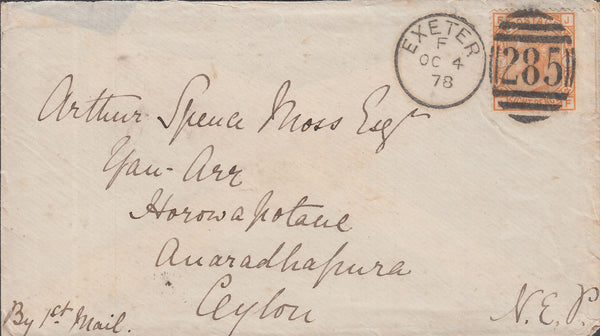 EXETER
F
OC 4
78
285
F J
J F
Arthur Spence Moss Esqr
Yan-Arr
Horowapotane
Anaradhapura
Ceylon
By 1st Mail.
N.E.P.